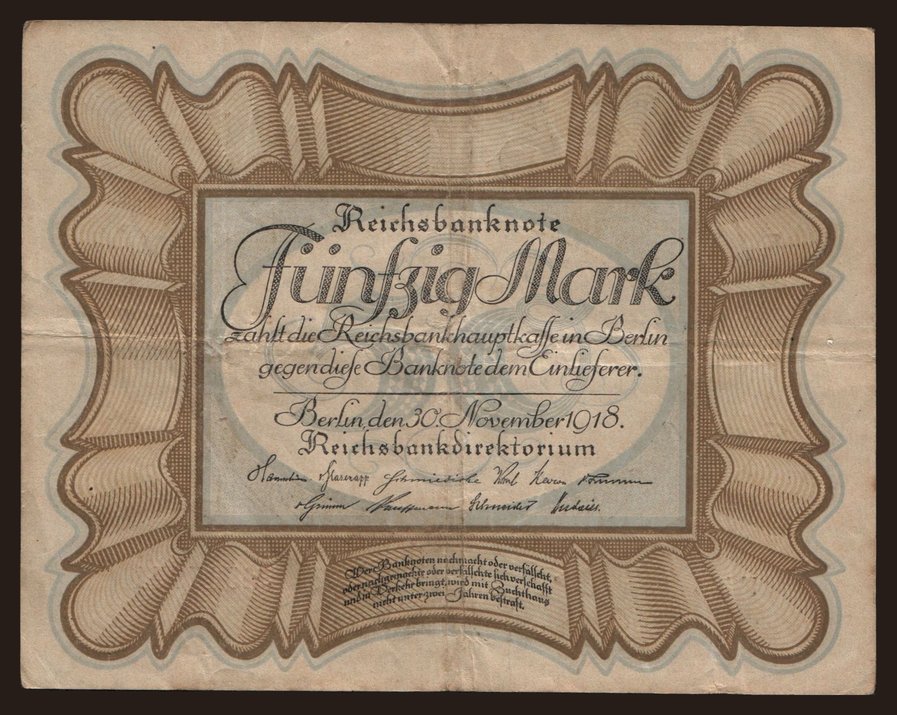 Reichsbanknote
Fünfzig Mark
zahlt die Reichsbankhauptkasse in Berlin
gegen diese Banknote dem Einlieferer.
Berlin, den 30. November 1918.
Reichsbankdirektorium
v Grimm Kauffmann Schneider
Wer Banknoten nachmacht oder verfälscht,
oder nachgemachte oder verfälschte sich verschafft
und in Verkehr bringt, wird mit Zuchthaus
nicht unter zwei Jahren bestraft.